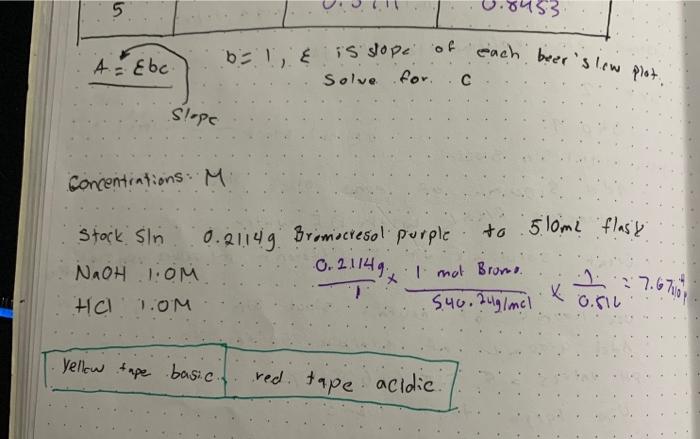 5 0.8453
A = εbc b=1, ε is slope of each beer's law plot.
Solve for c
Slope
Concentrations: M
Stock Sln 0.2114g Bromocresol purple to 510mL flask
NaOH 1.0M 0.2114g / 1 x 1 mol Bromo. / 540.24g/mol x 1 / 0.51L = 7.67x10
HCl 1.0M
Yellow tape basic red tape acidic